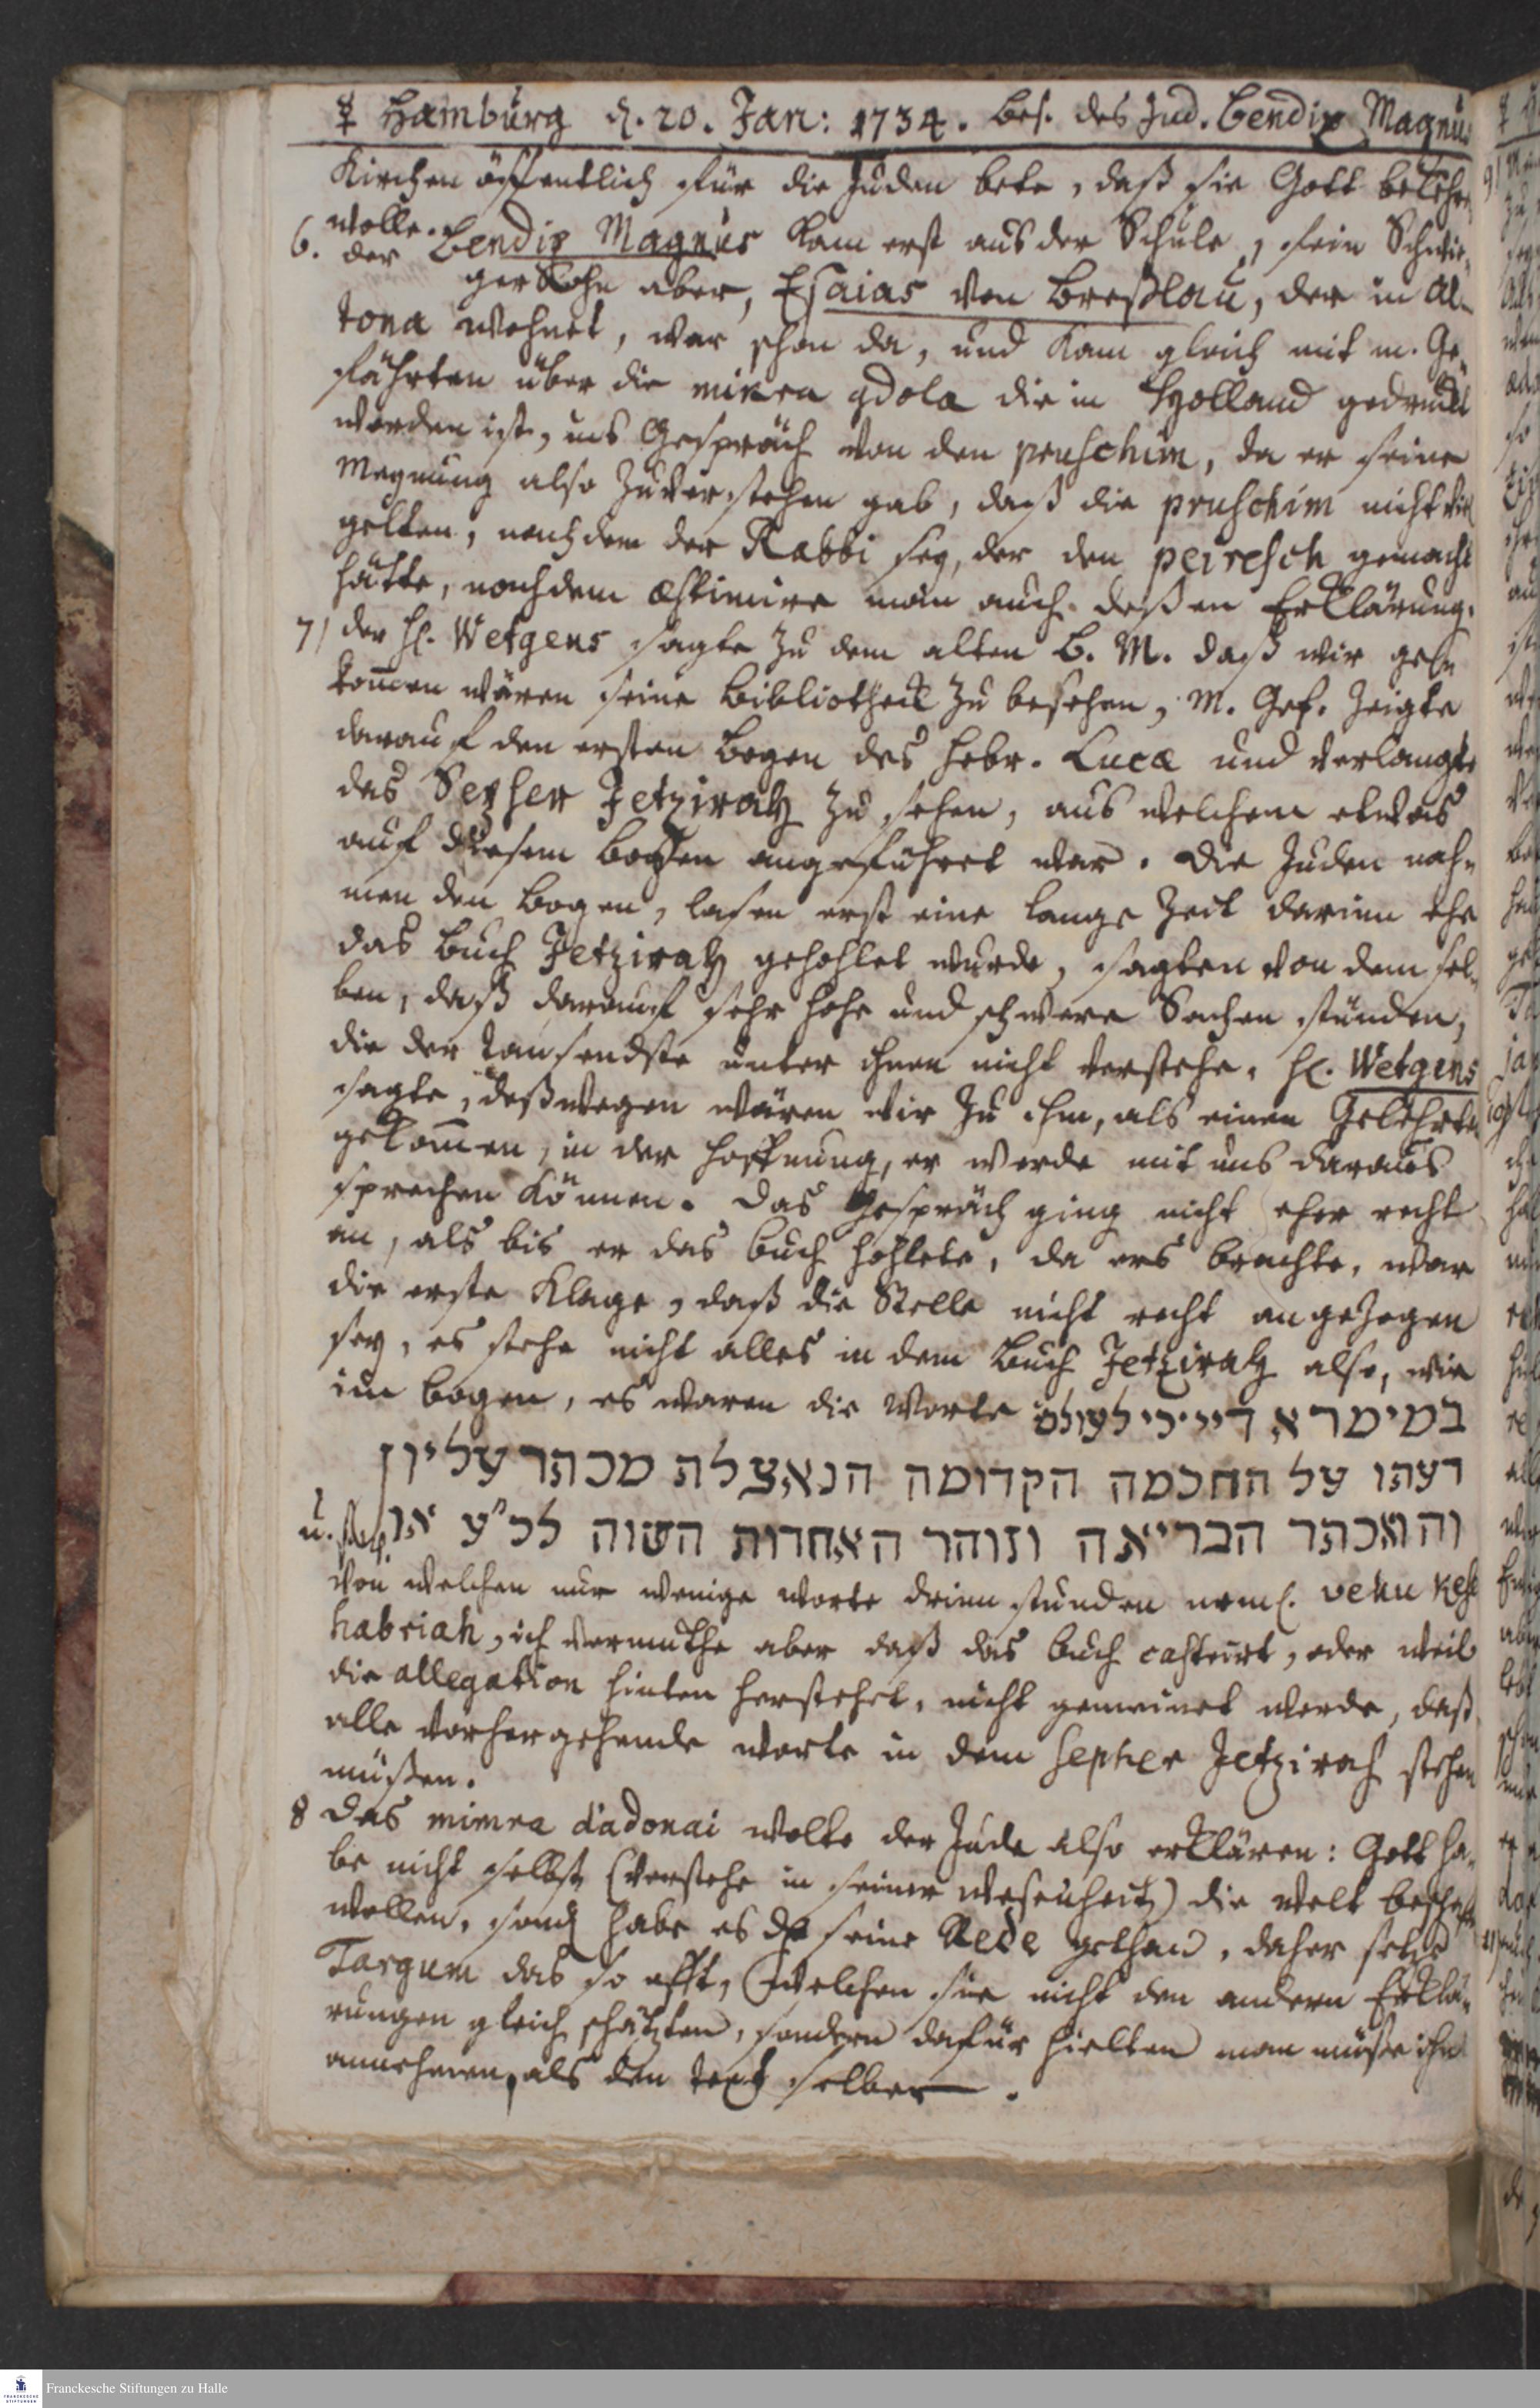 ☿ Hamburg d. 20. Jan: 1734. Bes. des Jud. Bendix Magnus
Kirchen öffentlich für die Juden bete, daß sie Gott bekehren
wolle.
6. der Bendix Magnus kam erst aus der Schule, sein Schwie-
gersohn aber, Esaias von Breßlau, der in Al-
tona wohnet, war schon da, und kam gleich mit m. Ge-
fährten über die mikra gdola die in Holland gedruckt
worden ist, ins Gespräch von den peruschim, da er seine
Meynung also zuverstehen gab, daß die pruschim nicht viel
gelten, nachdem der Rabbi sey, der den peiresch gemacht
hätte, nachdem æstimire man auch deßen Erklärung.
7) der H. Wetgens sagte zu dem alten B. M. daß wir ge-
kom̄en wären seine Bibliotheck zu besehen, M. Gef. zeigte
darauf den ersten Bogen des Hebr. Lucæ und verlangte
das Sepher Jetzirah zu sehen, aus welchem etwas
auf diesem Bogen angeführet war. Die Juden nah-
men den Bogen, lasen erst eine lange Zeit darinn ehe
das Buch Jetzirah gehohlet wurde, sagten von dem sel-
ben, daß darauf sehr hohe und schwere Sachen stünden,
die der Tausendste unter ihnen nicht verstehe. H. Wetgens
sagte, deßwegen wären wir zu ihm, als einen Gelehrten
gekom̄en, in der Hoffnung, er werde mit uns daraus
sprechen können. Das Gespräch ging nicht eher recht
an, als bis er das Buch hohlete, da ers brachte, war
die erste Klage, daß die Stelle nicht recht angezogen
sey, es stehe nicht alles in dem Buch Jetzirah also, wie
im Bogen, es waren die Worte במימרא דייי כי לעולם
דעתו על החכמה הקדומה הנאצלת מכתר עליון
והוא כתר הבריאה וזוהר האחדות השוה לכ"ע
von welchen nur wenige Worte drinn stunden neml. vehu
habriah, ich vermuthe aber daß das Buch castrirt, oder weil
die allegation hinten herstehet, nicht gemeinet werde, daß
alle vorhergehende Worte in dem Sepher Jetzirah stehen
müßen.
8 Das mimra d'adonai wolte der Jude also erklären: Gott ha-
be nicht selbst (verstehe in seiner Wesenheit) die Welt beschaffen
wollen, sond habe es seine Rede gethan, daher setze
Targum das so offt, (welchen sie nicht den andern Erklä-
rungen gleich schätzten, sondern dafür hielten man müße ihn
annehmen, als den Text selber.
Franckesche Stiftungen zu Halle